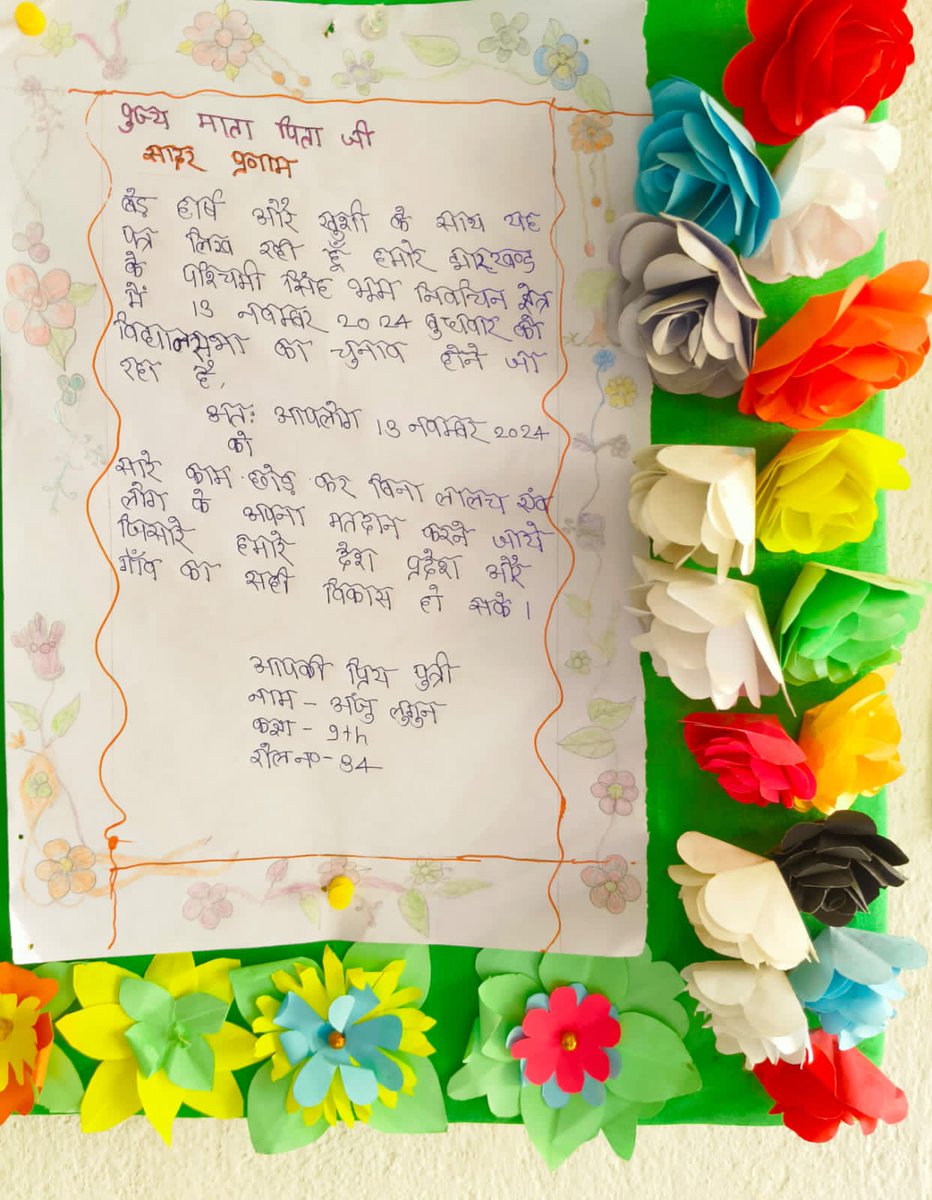 पुज्य माता पिता जी
सादर प्रणाम
बड़े हार्ष और खुशी के साथ यह
पत्र लिख रही हूँ हमारे झारखण्ड
के पश्चिमी सिंह भूम निर्वाचन क्षेत्र
में 13 नवम्बर 2024 बुधवार को
विधानसभा का चुनाव होने जा
रहा है,
अतः आपलोग 13 नवम्बर 2024
को
सारे काम छोड़ कर बिना लालच एंव
लोग के अपना मतदान करने जाये
जिसारे हमारे देश प्रदेश और
गाँव का सही विकास हो सके।
आपकी प्रिय पुत्री
नाम - अंजु लुगुन
कक्षा - 9th
रोल न० - 34